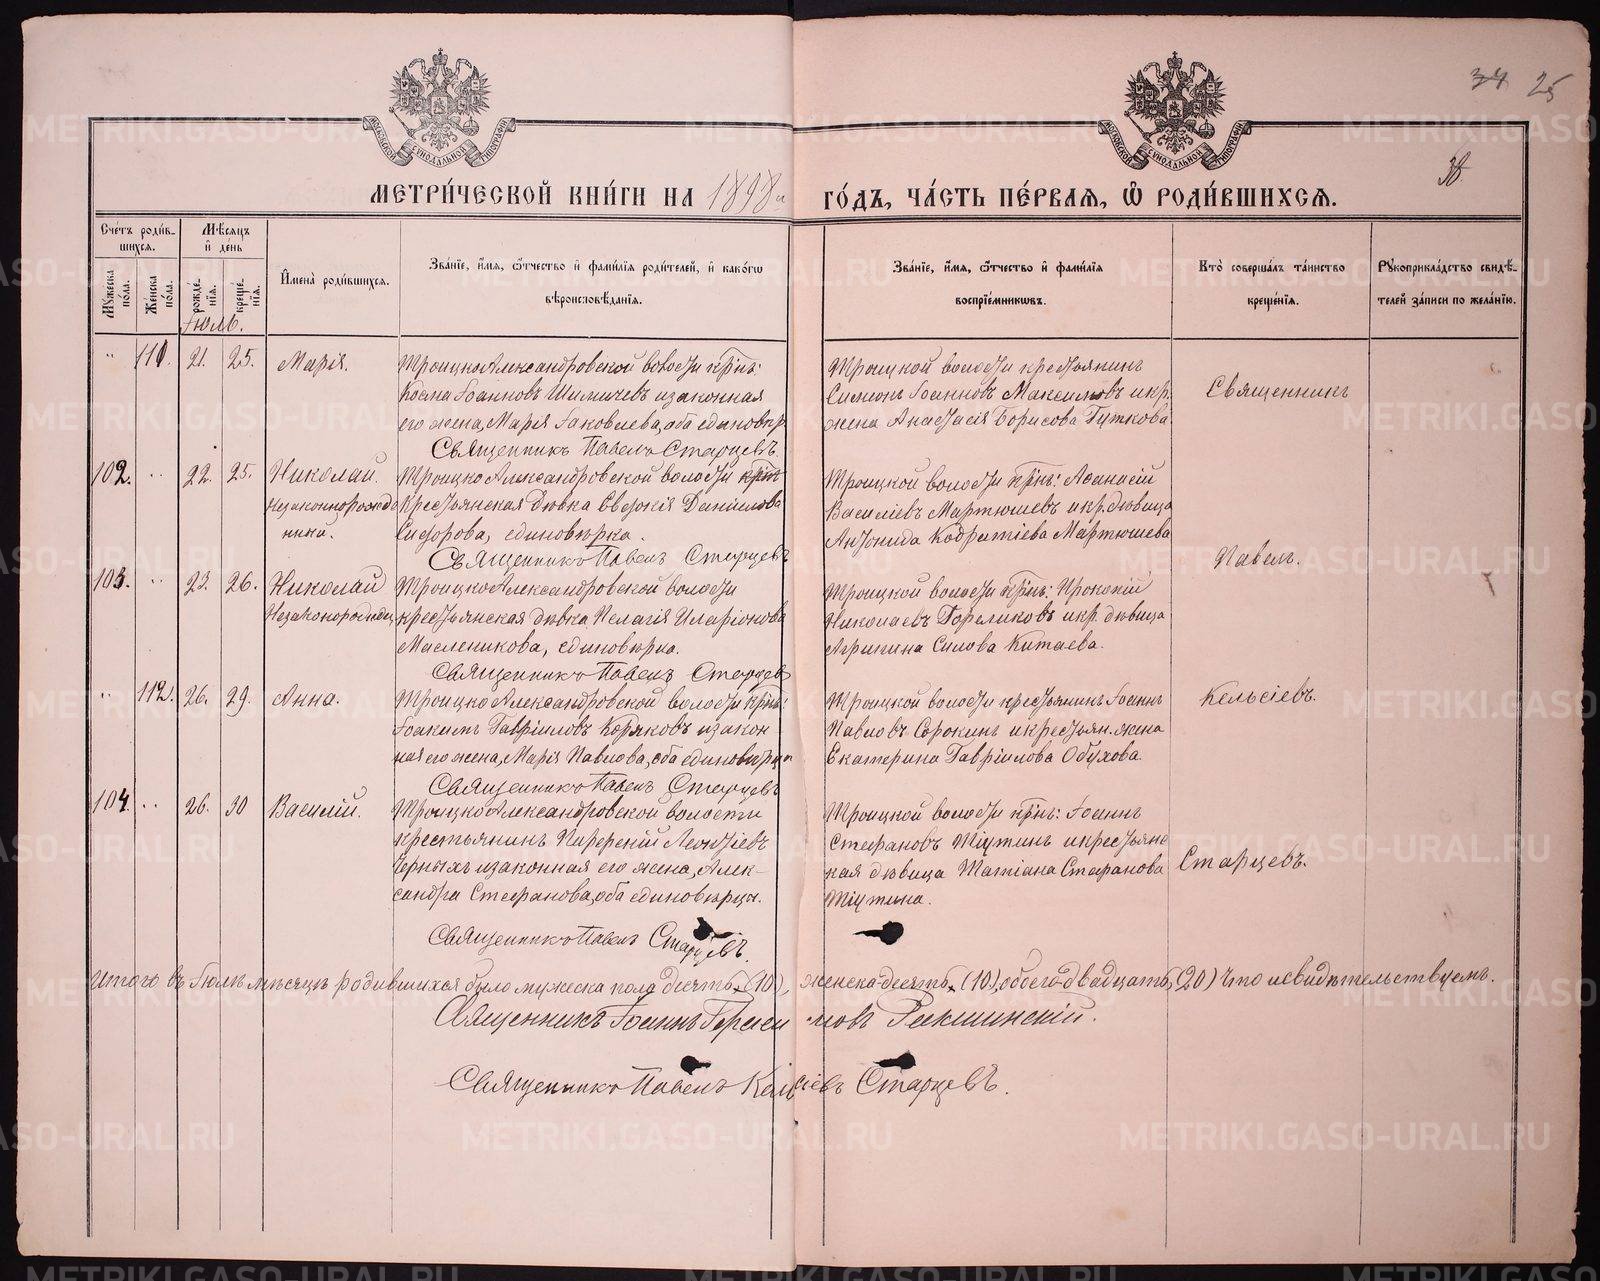 34 25
38
МОСКОВСКОЙ СѴНОДАЛЬНОЙ ТИПОГРАФІИ
МОСКОВСКОЙ СѴНОДАЛЬНОЙ ТИПОГРАФІИ
МЕТРИ́ЧЕСКОЙ КНИ́ГИ НА 1898 ГО́ДЪ, ЧА́СТЬ ПЕ́РВАЯ, Ѡ҆ РОДИ́ВШИХСЯ.
Сче́тъ роди́в-
шихся.
Мѣ́сяцъ
и҆ де́нь
Мꙋ́жеска по́ла.
Же́нска по́ла.
рожде́-
нїя.
креще́-
нїя.
И҆мена̀ роди́вшихся.
Зва́нїе, и҆́мя, ѻ҆́тчество и҆ фами́лїя роди́телей, и҆ како́гѡ
вѣроисповѣ́данїя.
Зва́нїе, и҆́мя, ѻ҆́тчество и҆ фами́лїя
воспрїе́мникѡвъ.
Кто̀ соверша́лъ та́инство
креще́нїя.
Рꙋкоприкла́дство свидѣ́-
телей за́писи по жела́нїю.
Іюль.
" 110. 21. 25. Марія.
ТроицкоАлександровской волости крн:
Косма Іоанновъ Шиличевъ изаконная
его жена, Марія Іаковлева, оба единовѣр.
Священникъ Павелъ Старцевъ.
Троицкой волости крестьянинъ
Симеонъ Іоанновъ Максимовъ икр.
жена Анастасія Борисова Гуткова.
Священникъ
102. " 22. 25. Николай
незаконнорожде
нный.
ТроицкоАлександровской волости
Крестьянская дѣвка Евдокія Данилова
Сидорова, единовѣрка.
Священникъ Павелъ Старцевъ
Троицкой волости крнъ: Аѳанасій
Василіевъ Мартюшевъ икр. дѣвица
Антонида Кодратіева Мартюшева
Павелъ.
103. " 23. 26. Николай
ТроицкоАлександровской волости
крестьянская дѣвка Пелагія Иларіонова
Масленикова, единовѣрка.
Священникъ Павелъ Старцевъ
Троицкой волости крнъ: Прокопій
Николаевъ Гореликовъ икр. дѣвица
Агрипина Силова Китаева.
" 112. 26. 29. Анна.
ТроицкоАлександровской волости крнъ:
Іоакимъ Гавріиловъ Коряковъ изакон
ная его жена, Марія Павлова, оба единовѣрцы
Священникъ Павелъ Старцевъ
Троицкой волости крестьянинъ Іоаннъ
Павловъ Сорокинъ икрестьян. жена
Екатерина Гавріилова Обухова.
Кельсіевъ.
104. " 26. 30 Василій.
ТроицкоАлександровской волости
крестьянинъ Парѳеній Леонтіевъ
Черныхъ изаконная его жена, Алек-
сандра Стефанова, оба единовѣрцы.
Священникъ Павелъ Старцевъ.
Троицкой волости крнъ: Іоаннъ
Стефановъ Тіунинъ икрестьянс
кая дѣвица Татіана Стефанова
Тіунина.
Старцевъ.
Итого въ Іюлѣ мѣсяцѣ родившихся было мужеска пола десять (10), женска-десять (10), обоего двадцать (20) Что исвидѣтельствуемъ.
Священникъ Іоаннъ Герасимовъ
Священникъ Павелъ Кельсіевъ Старцевъ.
METRIKI.GASO-URAL.RU